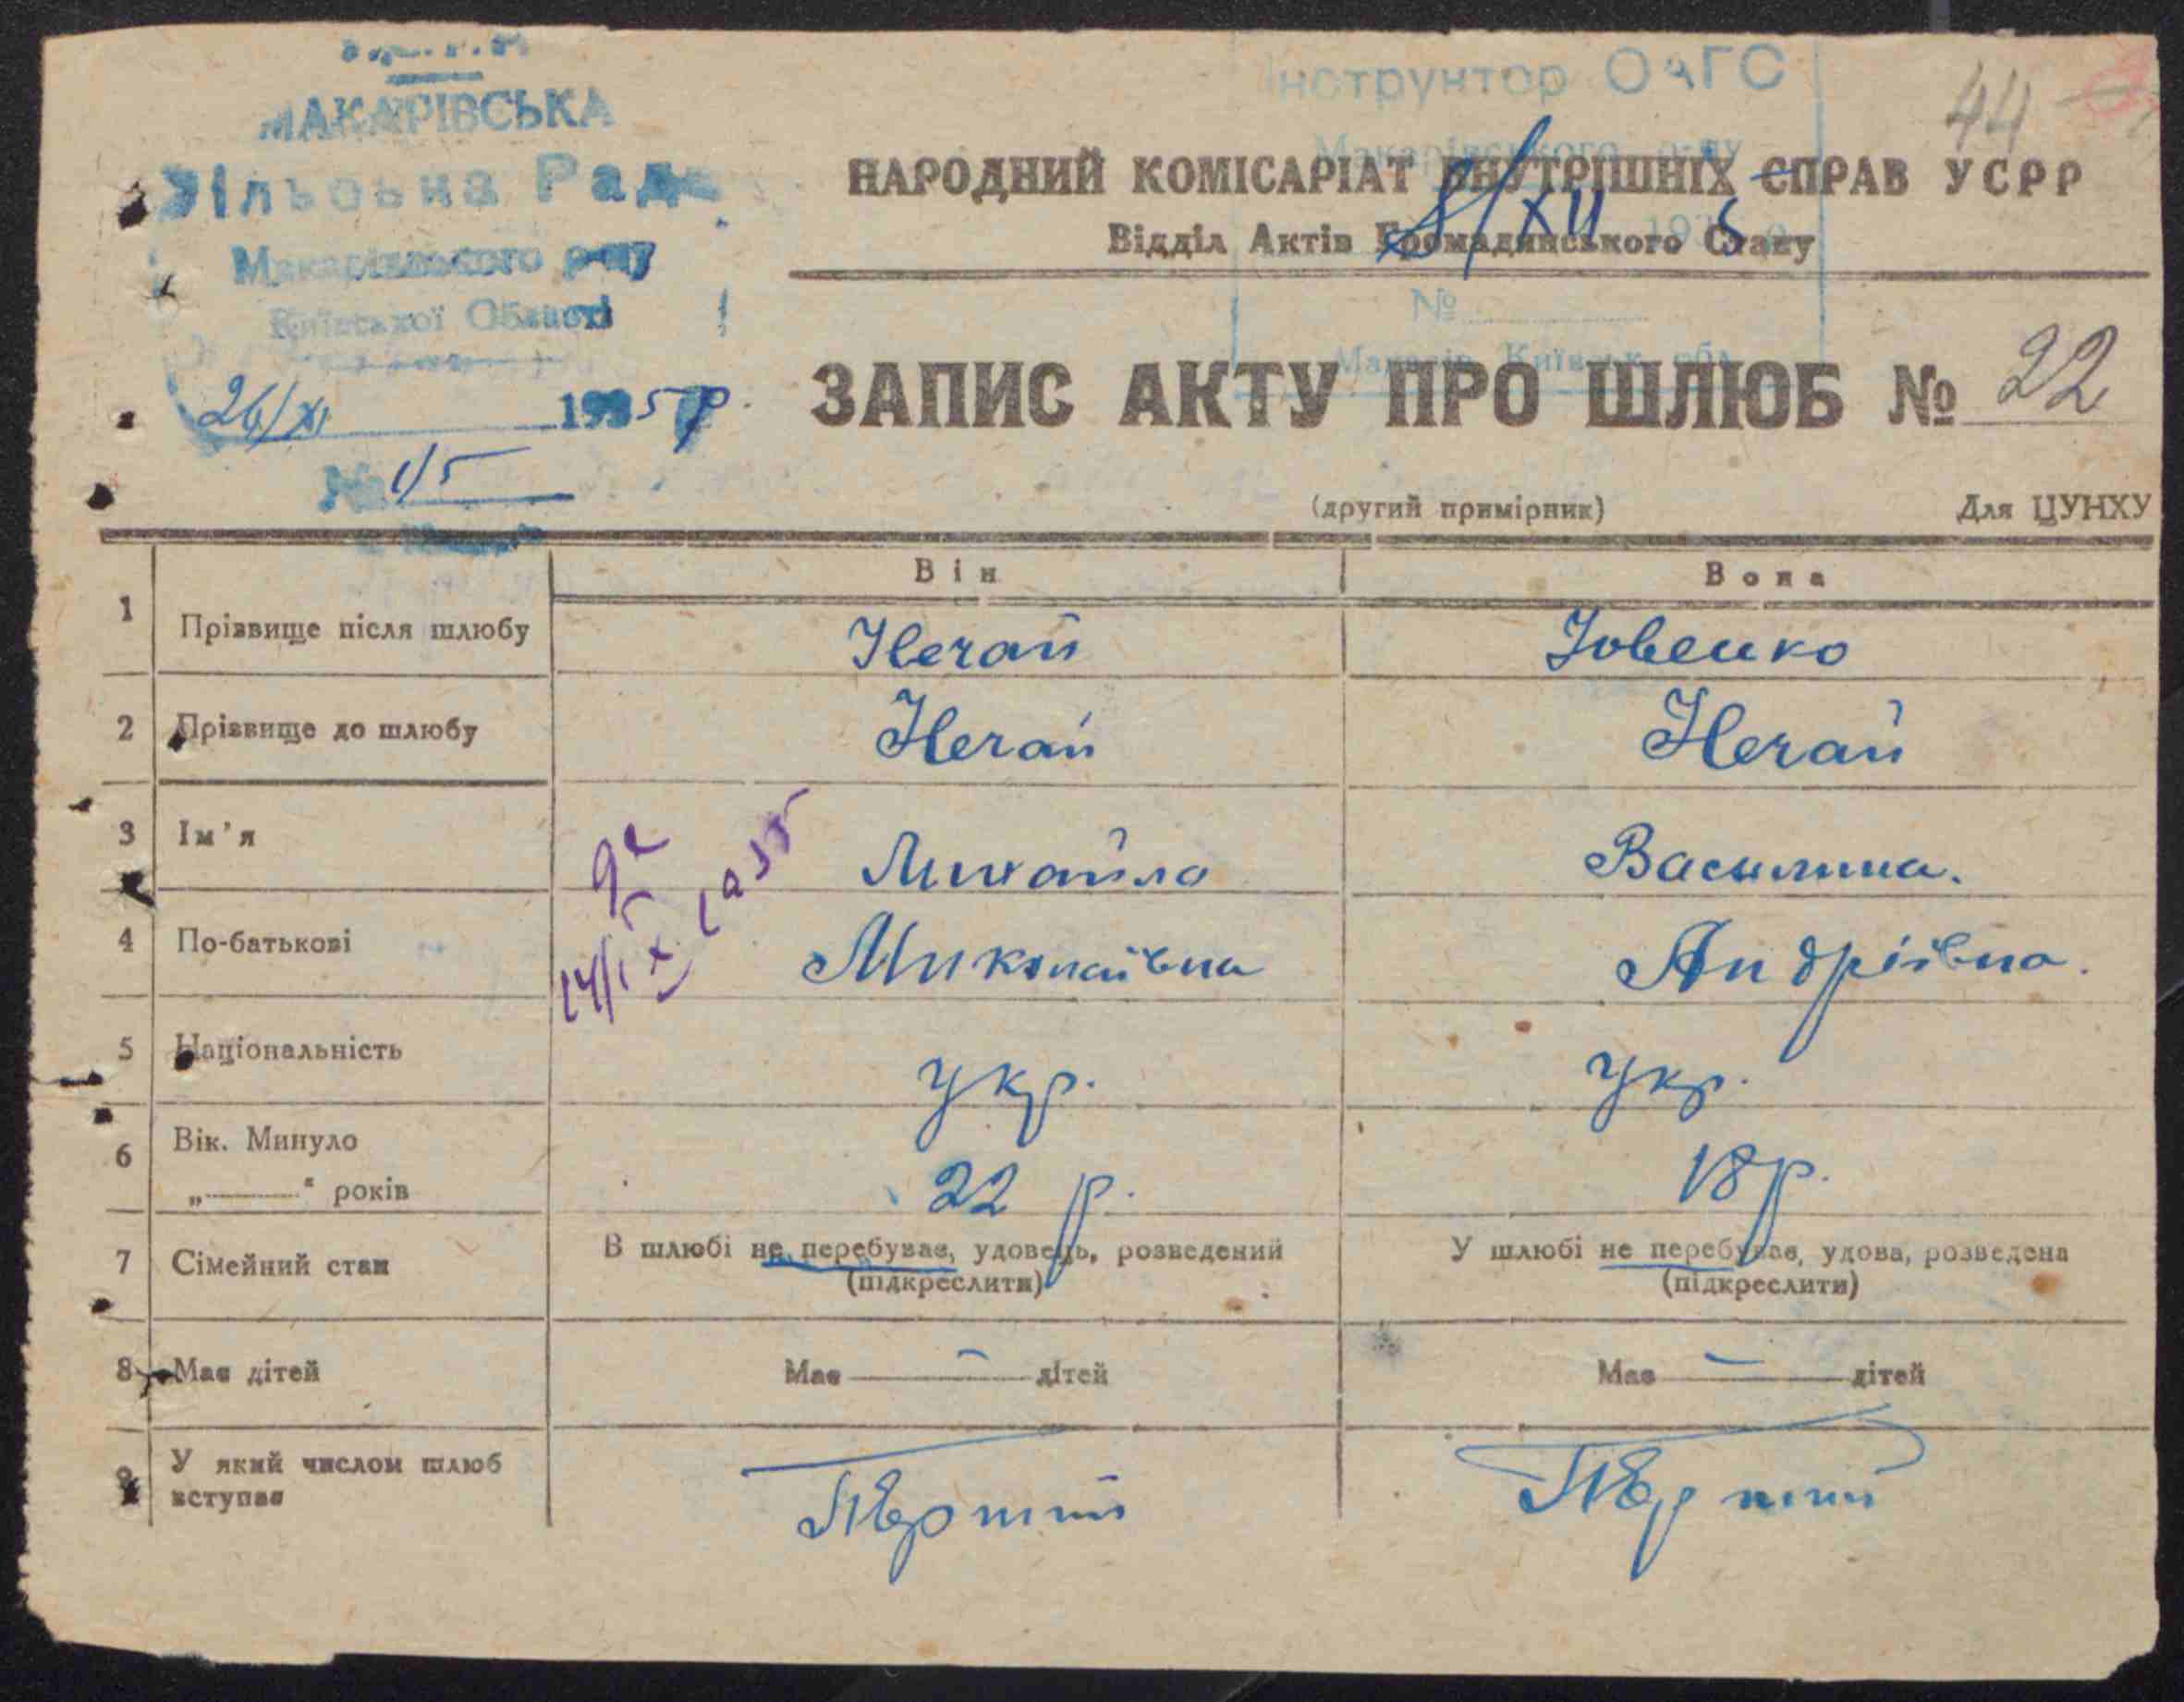 У.С.Р.Р.
МАКАРІВСЬКА
Сільська Рада
Макарівського р-ну
Київської Області
26/XI 1935 р.
№ 15
Інструктор ОАГС
Макарівського р-ну
8/XII 1935
№
Макарів, Київськ. обл.
44
НАРОДНИЙ КОМІСАРІАТ ВНУТРІШНІХ СПРАВ УСРР
Відділ Актів Громадянського Стану
ЗАПИС АКТУ ПРО ШЛЮБ № 22
(другий примірник) Для ЦУНХУ
Він Вона
1 Прізвище після шлюбу Нечай Йовенко
2 Прізвище до шлюбу Нечай Нечай
3 Ім'я Михайло Василина.
4 По-батькові Миколаївна Андріївна.
5 Національність укр. укр.
6 Вік. Минуло
„ “ років 22 р. 18 р.
7 Сімейний стан В шлюбі не перебуває, удовець, розведений У шлюбі не перебуває, удова, розведена
(підкреслити) (підкреслити)
8 Має дітей Має — дітей Має — дітей
9 У який числом шлюб
вступає Перший Перший